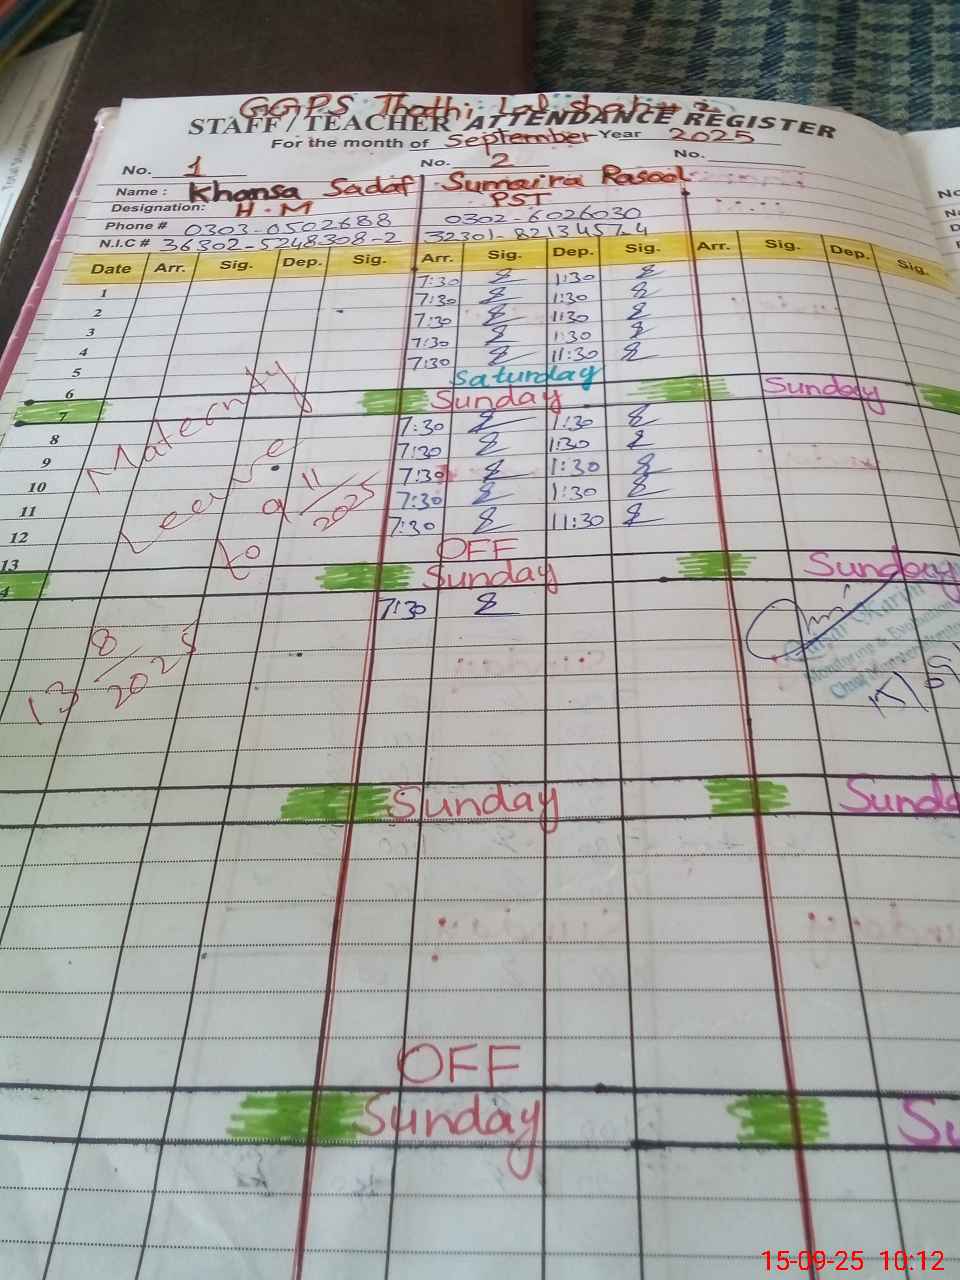 GGPS Thathi Lal Shah # 2
STAFF / TEACHER ATTENDANCE REGISTER
For the month of September Year 2025
No. 1 No. 2 No.
Name : Khansa Sadaf Sumaira Rasool
Designation: H.M PST
Phone # 0303-0502688 0302-6026030
N.I.C # 36302-5248308-2 32301-8213457-4
Date Arr. Sig. Dep. Sig. Arr. Sig. Dep. Sig. Arr. Sig. Dep. Sig.
1 7:30 1:30
2 7:30 1:30
3 7:30 1:30
4 7:30 1:30
5 7:30 11:30
6 Saturday
7 Sunday Sunday
8 7:30 1:30
9 7:30 1:30
10 7:30 1:30
11 7:30 1:30
12 7:30 11:30
13 OFF
4 Sunday Sunday
7:30
Maternity
Leave
to 9 11/2025
13 8/2025
Monitoring & Evaluation
Sunday Sunda
OFF
Sunday Su
15-09-25 10:12